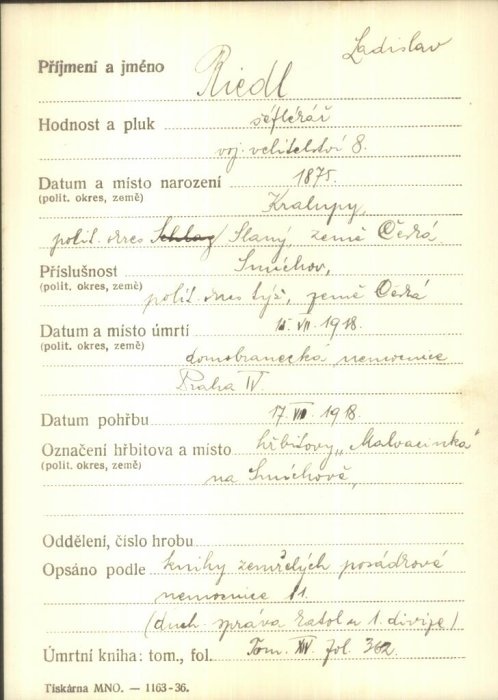 Ladislav
Příjmení a jméno Riedl
Hodnost a pluk šéflékař
voj. velitelství 8.
Datum a místo narození 1875.
(polit. okres, země) Kralupy,
polit. okres Schlag Slaný země Česká
Příslušnost Smíchov,
(polit. okres, země) polit. okres týž, země Česká
Datum a místo úmrtí 15. VII. 1918.
(polit. okres, země)
domobranecká nemocnice
Praha IV.
Datum pohřbu 17. VII. 1918.
Označení hřbitova a místo hřbitovy „Malvacinka"
(polit. okres, země)
na Smíchově,
Oddělení, číslo hrobu
Opsáno podle knihy zemřelých posádkové
nemocnice 11.
(duch. správa katol. 1. divize)
Úmrtní kniha: tom., fol. Tom. XIV. fol. 362
Tiskárna MNO. — 1163-36.